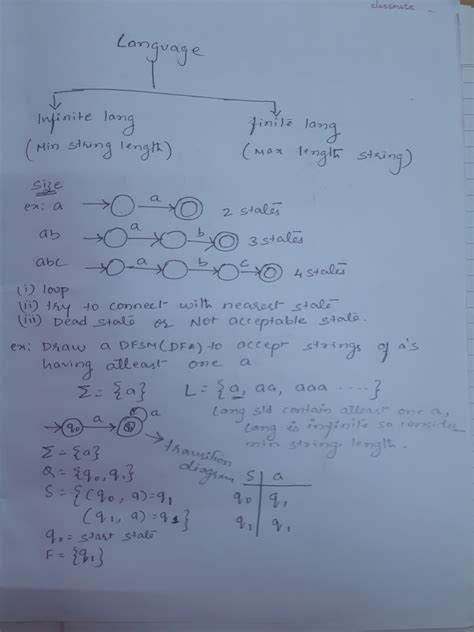 classmate
Language
Infinite lang finite lang
(Min string length) (Max length string)
size
ex: a a 2 states
ab a b 3 states
abc a b c 4 states
(i) loop
(ii) try to connect with nearest state
(iii) Dead state or Not acceptable state.
ex: Draw a DFSM(DFA) to accept strings of a's
having atleast one a
Σ = {a} L = {a, aa, aaa ....}
Lang std contain atleast one a,
Lang is infinite so consider
min string length.
q0 a a
transition
diagram
Σ = {a}
Q = {q0, q1}
S = {(q0, a) = q1
(q1, a) = q1}
q0 = start state
F = {q1}
S a
q0 q1
q1 q1